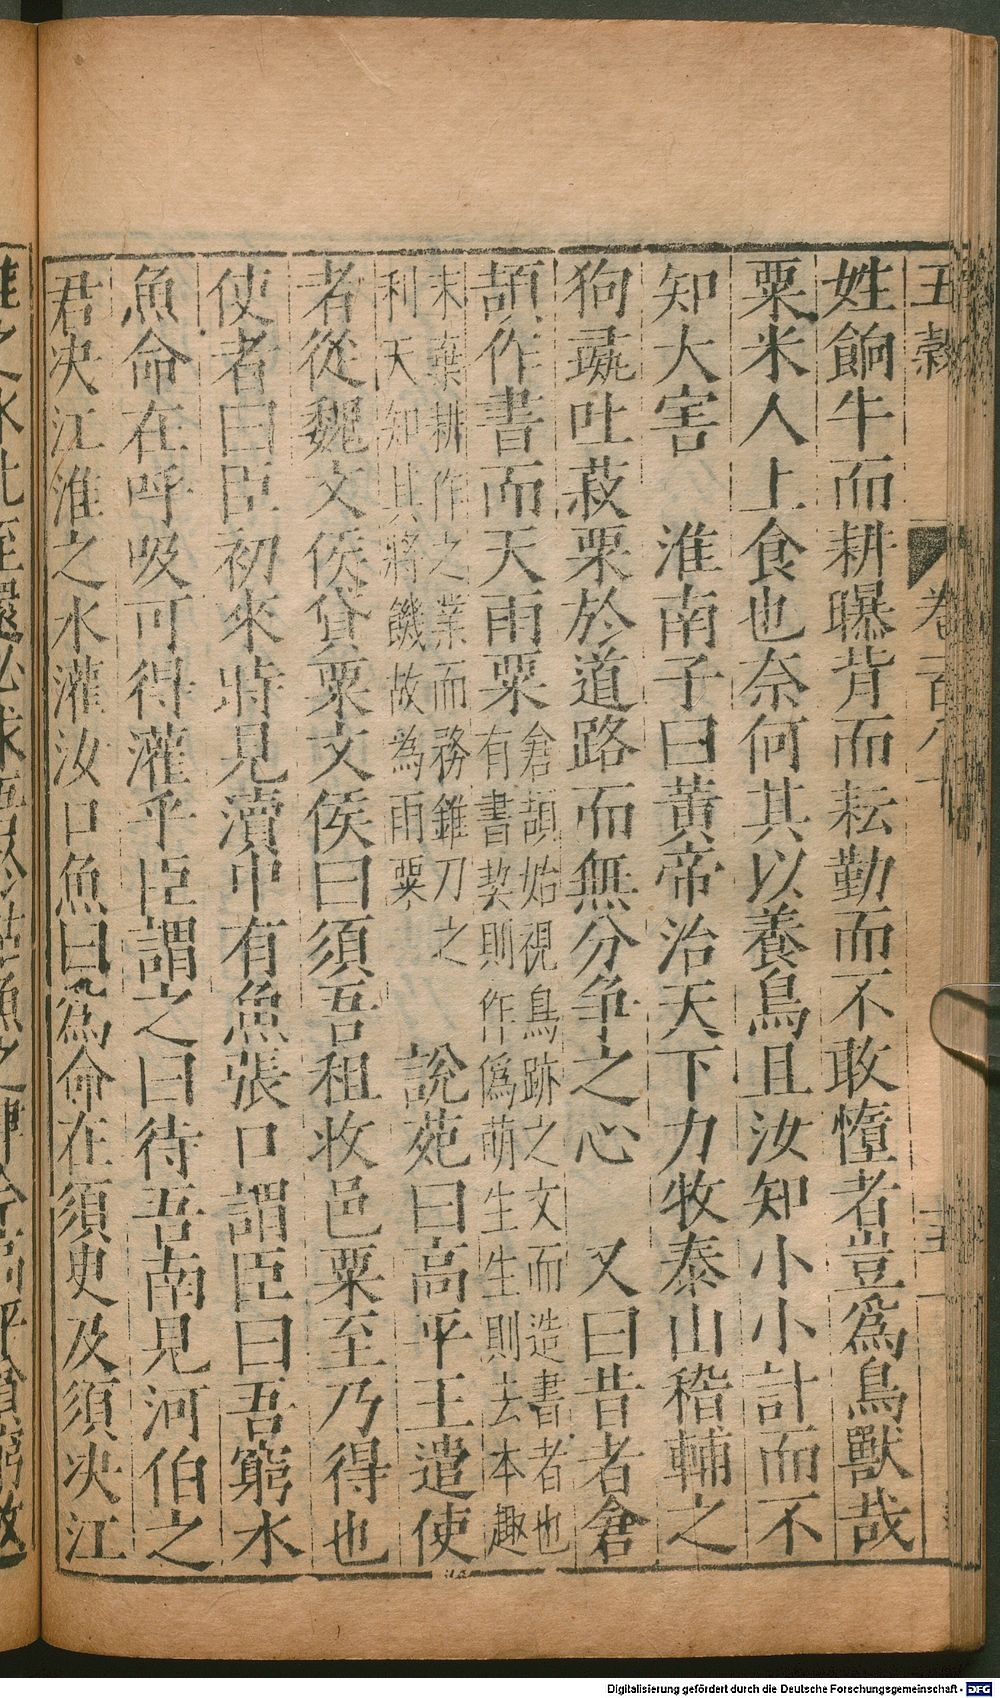 五穀 卷百八十 十五
姓餉牛而耕曝背而耘勤而不敢惰者豈爲鳥獸哉
粟米人上食也奈何其以養鳥且汝知小小計而不
知大害 淮南子曰黄帝治天下力牧泰山稽輔之
狗彘吐菽粟於道路而無分爭之心 又曰昔者倉
頡作書而天雨粟倉頡始視鳥跡之文而造書者也
有書契則作僞萌生生則去本趣
末棄耕作之業而務錐刀之
利天知其將饑故為雨粟 說苑曰高平王遣使
者從魏文侯貸粟文侯曰須吾租收邑粟至乃得也
使者曰臣初來時見瀆中有魚張口謂臣曰吾窮水
魚命在呼吸可得灌乎臣謂之曰待吾南見河伯之
君决江淮之水灌汝口魚曰爲命在須臾及須决江
Digitalisierung gefördert durch die Deutsche Forschungsgemeinschaft - DFG